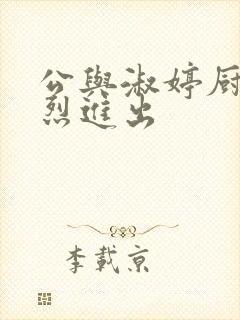 公與淑婷厨
烈進出
李載京